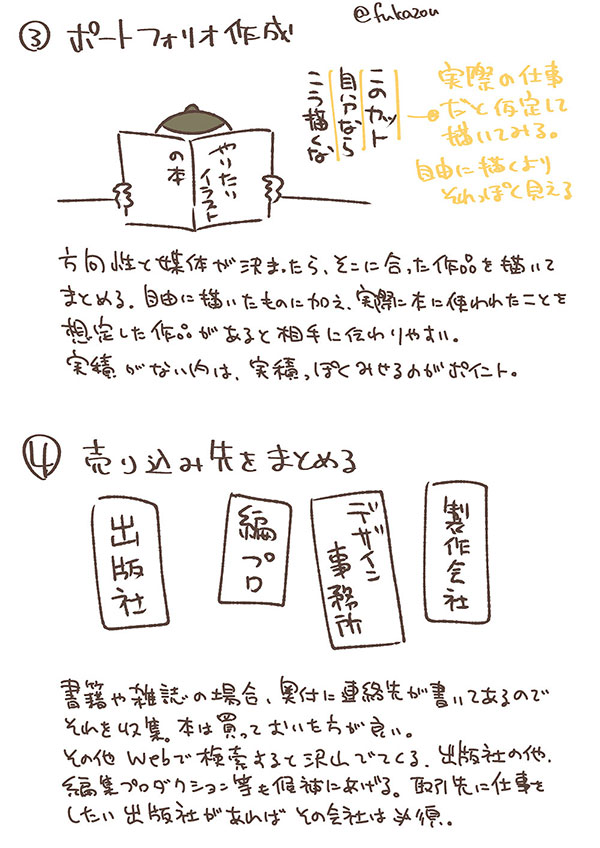 @fukazou
③ ポートフォリオ作成
やりたい
イラスト
の本
このカット
自分なら
こう描くな
実際の仕事
だと仮定して
描いてみる。
自由に描くより
それっぽく見える
方向性と媒体が決まったら、そこに合った作品を描いて
まとめる。自由に描いたものに加え、実際に本に使われたことを
想定した作品があると相手に伝わりやすい。
実績がない内は、実績っぽくみせるのがポイント。
④ 売り込み先をまとめる
出版社
編プロ
デザイン
事務所
製作会社
書籍や雑誌の場合、奥付に連絡先が書いてあるので
それを収集。本は買っておいた方が良い。
その他Webで検索すると沢山でてくる。出版社の他、
編集プロダクション等も候補にあげる。取引先に仕事を
したい出版社があればその会社は必須。